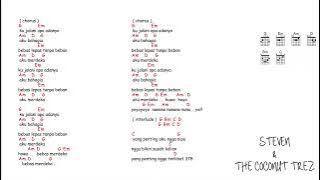 [ chorus ]
G Em
ku jalani apa adanya
Am D G
aku bahagia
Em
bebas lepas tanpa beban
Am D G
aku merdeka
Em
ku jalani apa adanya
Am D G
aku bahagia
Em
bebas lepas tanpa beban
Am D G
aku merdeka
G Em
ku jalani apa adanya
Am D G
aku bahagia
Em
bebas lepas tanpa beban
Am D G Em
howo... bebas merdeka
Am D G
bebas merdeka..
[ chorus ]
G Em
ku jalani apa adanya
Am D G
aku bahagia
Em
bebas lepas tanpa beban
Am D G
aku merdeka
G Em
ku jalani apa adanya
Am D G
aku bahagia
Em
bebas lepas tanpa beban
Am D G Em Am D
aku merdeka
G Em Am D
[ interlude ] G Em C D
G Em C D
C G
yang penting aku ngga siri
C G
ngga bikin susah bebas
C D
yang penting ngga
G Em Am
D C
STEVEN
&
THE COCONUT TREZ